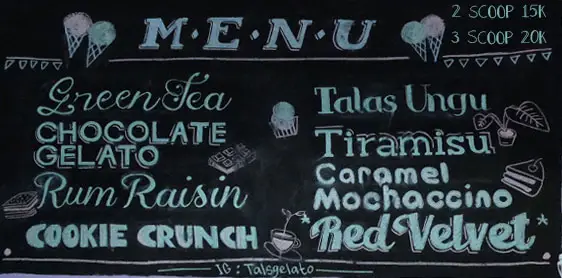 M·E·N·U
2 SCOOP 15K
3 SCOOP 20K
Green Tea
CHOCOLATE
GELATO
Rum Raisin
COOKIE CRUNCH
Talas Ungu
Tiramisu
Caramel
Mochaccino
*Red Velvet*
IG : Talsgelato